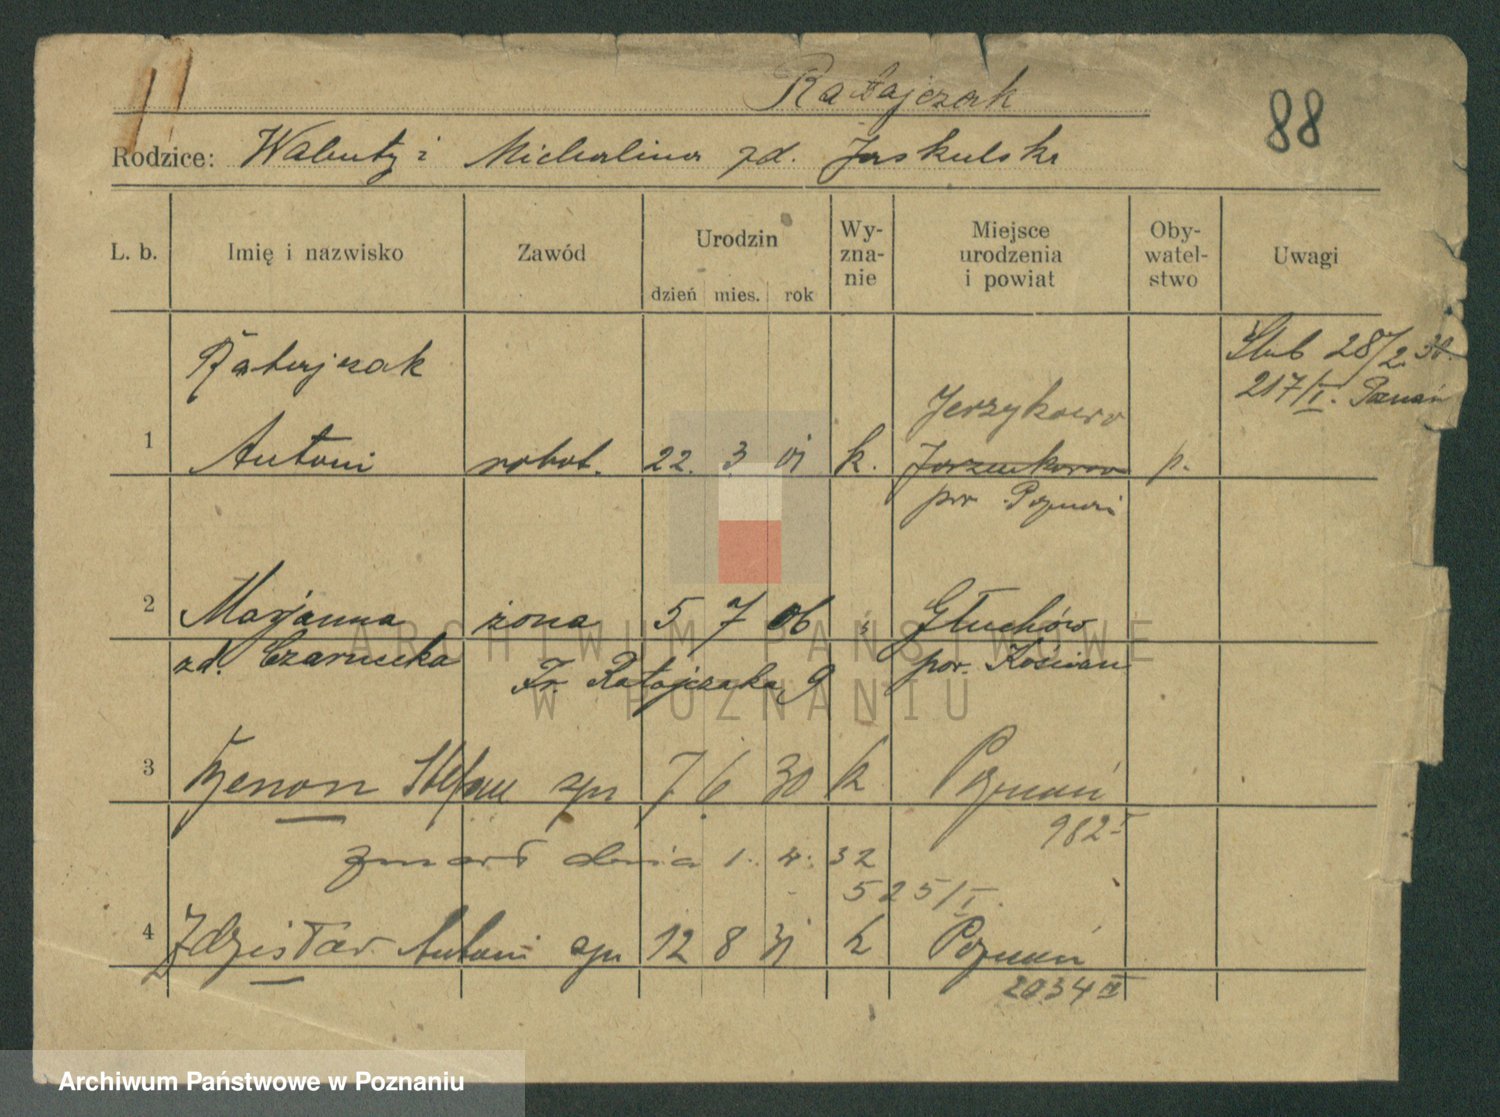 Ratajczak
88
Rodzice: Walenty i Michalina zd. Jaskulska
L. b. Imię i nazwisko Zawód Urodzin dzień mies. rok Wy-zna-nie Miejsce urodzenia i powiat Oby-watel-stwo Uwagi
Ratajczak Ślub 28/2. 30.
217/I. Poznań
Jerzykowo
1 Antoni robot. 22. 3 01 k. p.
pow. Poznań
2 Marjanna żona 5 7 06 Głuchów
zd. Czarnecka Fr. Ratajczaka 9 pow. Kościan
3 Zenon Stefan syn 7 6 30 k Poznań
982 I
zmarł dnia 1. 4. 32
525/I.
4 Zdzisław Antoni syn 12 8 31 k Poznań
2034 IV
ARCHIWUM PAŃSTWOWE
W POZNANIU
Archiwum Państwowe w Poznaniu